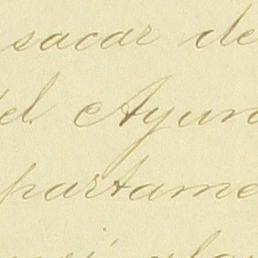 sacar de
del Ayun
partame